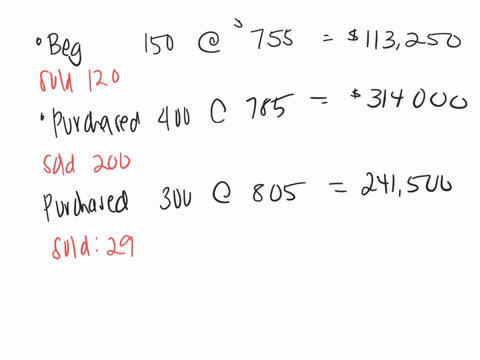 • Beg 150 @ $755 = $113,250
sold 120
• Purchased 400 @ 785 = $314 000
sold 200
Purchased 300 @ 805 = 241,500
sold: 29